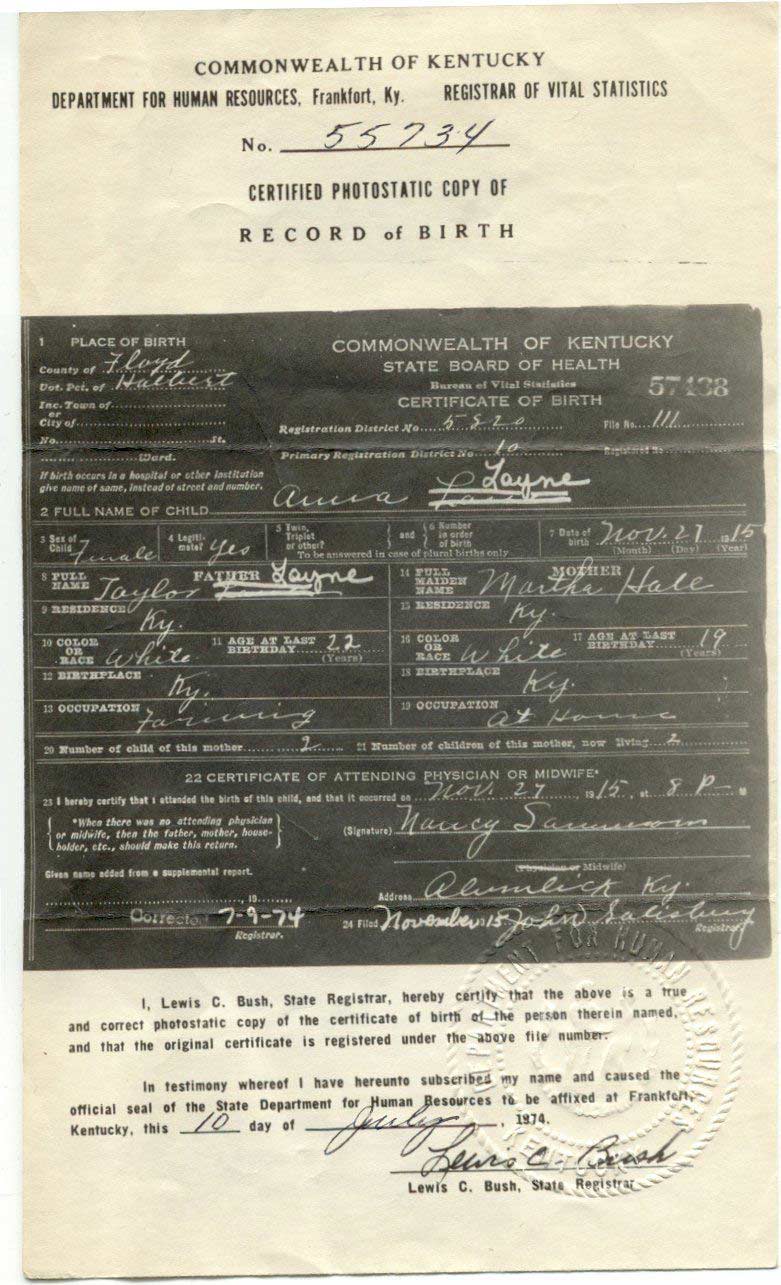 COMMONWEALTH OF KENTUCKY
DEPARTMENT FOR HUMAN RESOURCES, Frankfort, Ky. REGISTRAR OF VITAL STATISTICS
No. 55734
CERTIFIED PHOTOSTATIC COPY OF
RECORD of BIRTH
1 PLACE OF BIRTH
County of Floyd
Vot. Pct. of Halbert
Inc. Town of
or
City of
No. St.
Ward.
If birth occurs in a hospital or other institution
give name of same, instead of street and number.
COMMONWEALTH OF KENTUCKY
STATE BOARD OF HEALTH
Bureau of Vital Statistics
CERTIFICATE OF BIRTH
57438
Registration District No 5820 File No. 111
Primary Registration District No. 10 Registered No
2 FULL NAME OF CHILD Anna Layne
3 Sex of Child Female
4 Legitimate? Yes
5 Twin, Triplet or other? and 6 Number in order of birth
To be answered in case of plural births only
7 Date of birth Nov. 27 1915
(Month) (Day) (Year)
8 FULL NAME FATHER Taylor Layne
14 FULL MAIDEN NAME MOTHER Martha Hale
9 RESIDENCE Ky.
15 RESIDENCE Ky.
10 COLOR OR RACE White
11 AGE AT LAST BIRTHDAY 22 (Years)
16 COLOR OR RACE White
17 AGE AT LAST BIRTHDAY 19 (Years)
12 BIRTHPLACE Ky.
18 BIRTHPLACE Ky.
13 OCCUPATION Farming
19 OCCUPATION At Home
20 Number of child of this mother 2 21 Number of children of this mother, now living 2
22 CERTIFICATE OF ATTENDING PHYSICIAN OR MIDWIFE*
23 I hereby certify that I attended the birth of this child, and that it occurred on Nov. 27, 1915, at 8 P M
*When there was no attending physician
or midwife, then the father, mother, house-
holder, etc., should make this return.
(Signature) Nancy Sammons
(Physician or Midwife)
Given name added from a supplemental report.
Address Alumlick Ky.
, 19
Corrected 7-9-74
Registrar.
24 Filed November 1915 John W Salisbury
Registrar
I, Lewis C. Bush, State Registrar, hereby certify that the above is a true
and correct photostatic copy of the certificate of birth of the person therein named,
and that the original certificate is registered under the above file number.
In testimony whereof I have hereunto subscribed my name and caused the
official seal of the State Department for Human Resources to be affixed at Frankfort,
Kentucky, this 10 day of July, 1974.
Lewis C. Bush
Lewis C. Bush, State Registrar
DEPARTMENT FOR HUMAN RESOURCES
KENTUCKY